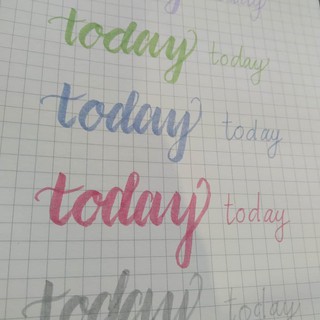 today today
today today
today today
today today